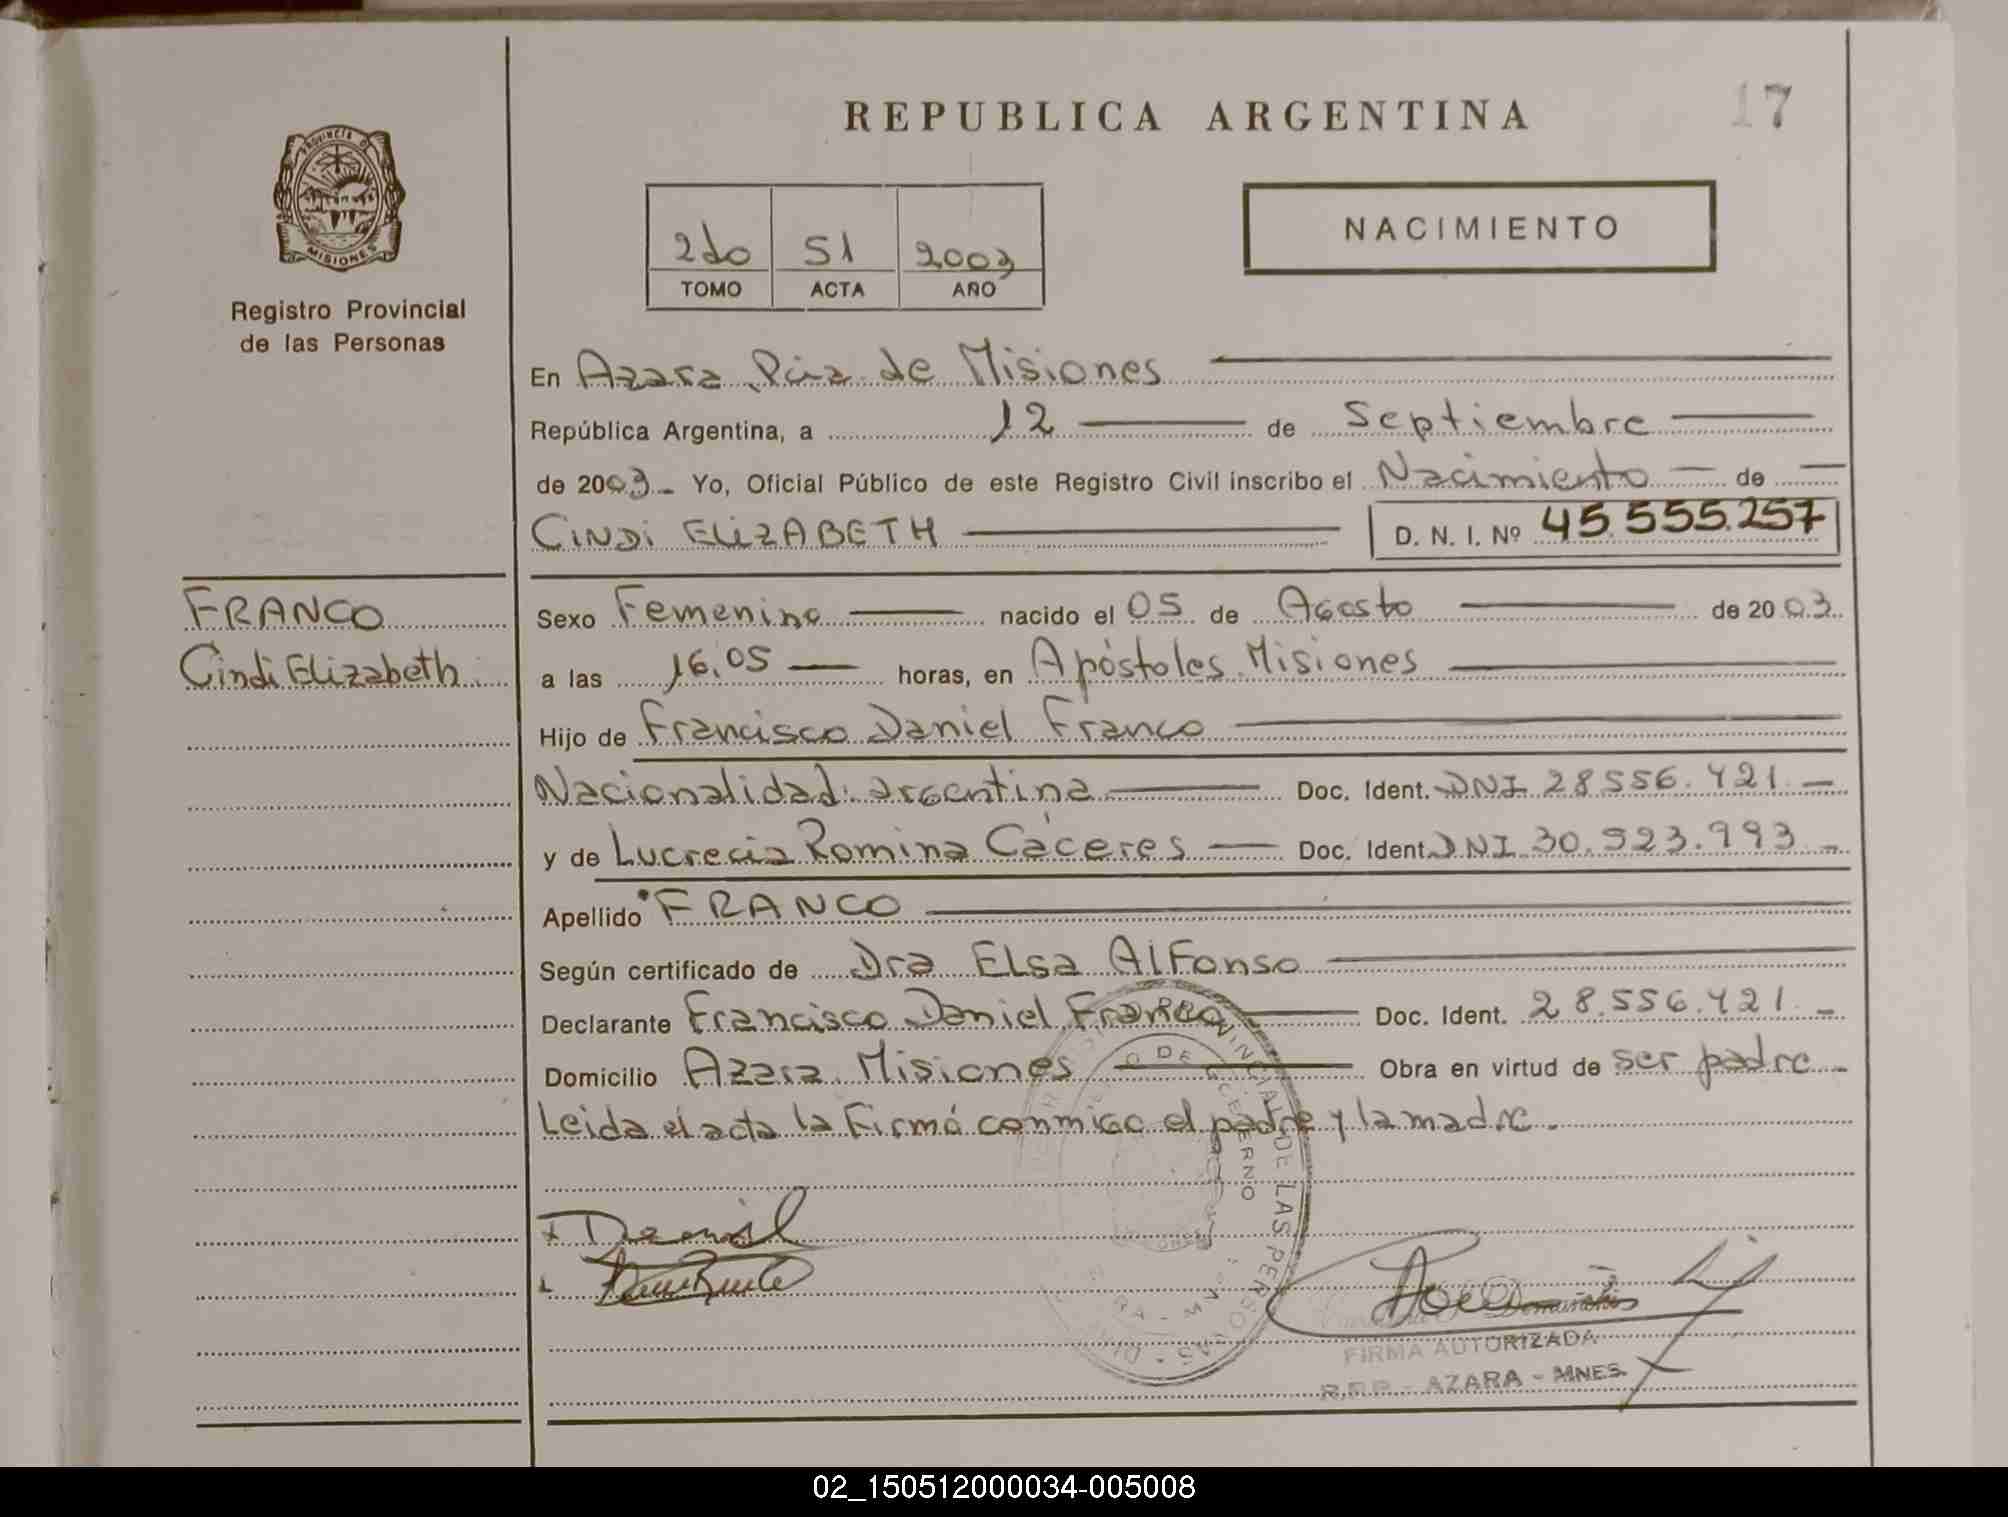 REPUBLICA ARGENTINA
17
PROVINCIA DE
MISIONES
Registro Provincial
de las Personas
2do 51 2003
TOMO ACTA AÑO
NACIMIENTO
En Azara Pcia de Misiones
República Argentina, a 12 de Septiembre
de 2003 Yo, Oficial Público de este Registro Civil inscribo el Nacimiento de
CINDI ELIZABETH D. N. I. Nº 45.555.257
FRANCO
Cindi Elizabeth
Sexo Femenino nacido el 05 de Agosto de 2003
a las 16.05 horas, en Apóstoles Misiones
Hijo de Francisco Daniel Franco
Nacionalidad: argentina Doc. Ident. DNI 28556.421
y de Lucrecia Romina Cáceres Doc. Ident. DNI 30.923.993
Apellido FRANCO
Según certificado de Dra Elsa Alfonso
Declarante Francisco Daniel Franco Doc. Ident. 28.556.421
Domicilio Azara Misiones Obra en virtud de ser padre
Leida el acta la Firmó conmigo el padre y la madre.
FIRMA AUTORIZADA
R.P.P - AZARA - MNES.
02_150512000034-005008